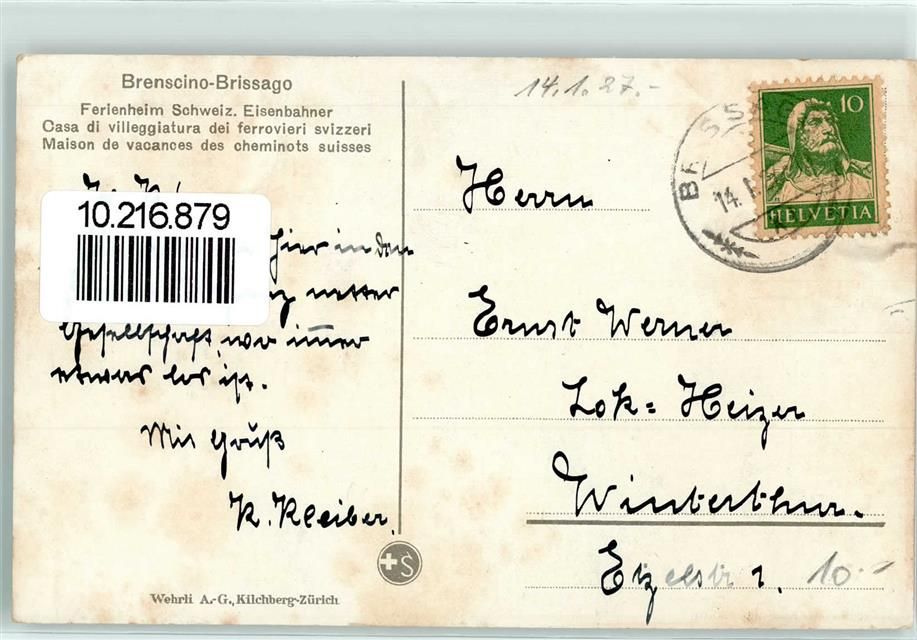 Brenscino-Brissago
Ferienheim Schweiz. Eisenbahner
Casa di villeggiatura dei ferrovieri svizzeri
Maison de vacances des cheminots suisses
10.216.879
hier in dem
netter
Gesellschaft, wo immer
etwas los ist.
Mit Gruß
K. Kleiber.
Wehrli A.-G., Kilchberg-Zürich
14.1.27.-
10
HELVETIA
14. I.
Herrn
Ernst Werner
Lok= Heizer
Winterthur.
Etzelstr 1.
10.-
S